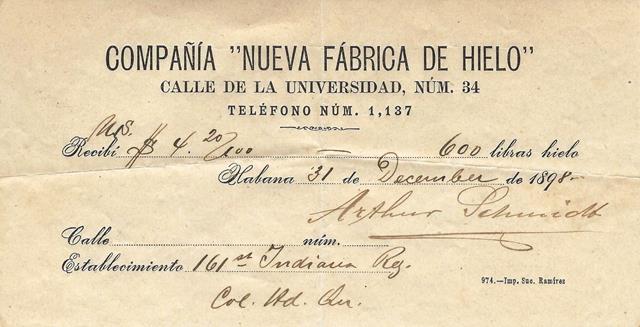 COMPAÑÍA "NUEVA FÁBRICA DE HIELO"
CALLE DE LA UNIVERSIDAD, NÚM. 34
TELÉFONO NÚM. 1,137
U.S.
Recibí $ 4. 20/100 — 600 libras hielo
Habana 31 de December de 1898-
Arthur Schmidt
Calle núm.
Establecimiento 161st Indiana Reg.
Col. Hd. Qu.
974.—Imp. Suc. Ramírez